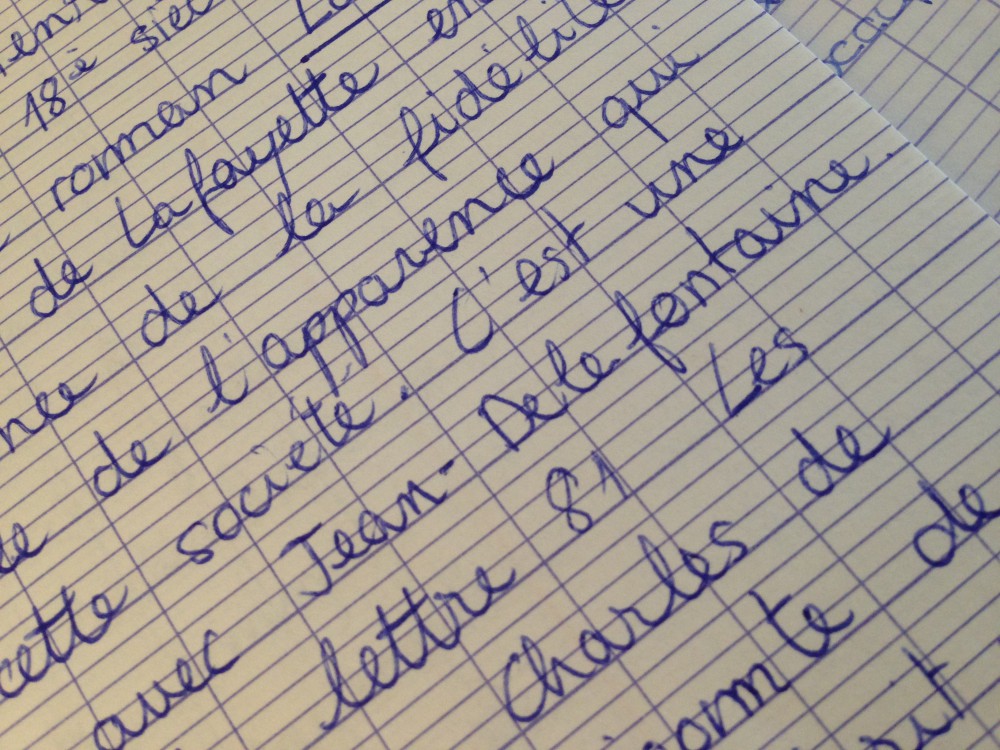 18è
roman La
de Lafayette en
de la fidélité
de l'apparence qui
cette société. C'est une
avec Jean-De la fontaine.
lettre 81 Les
Charles de
de